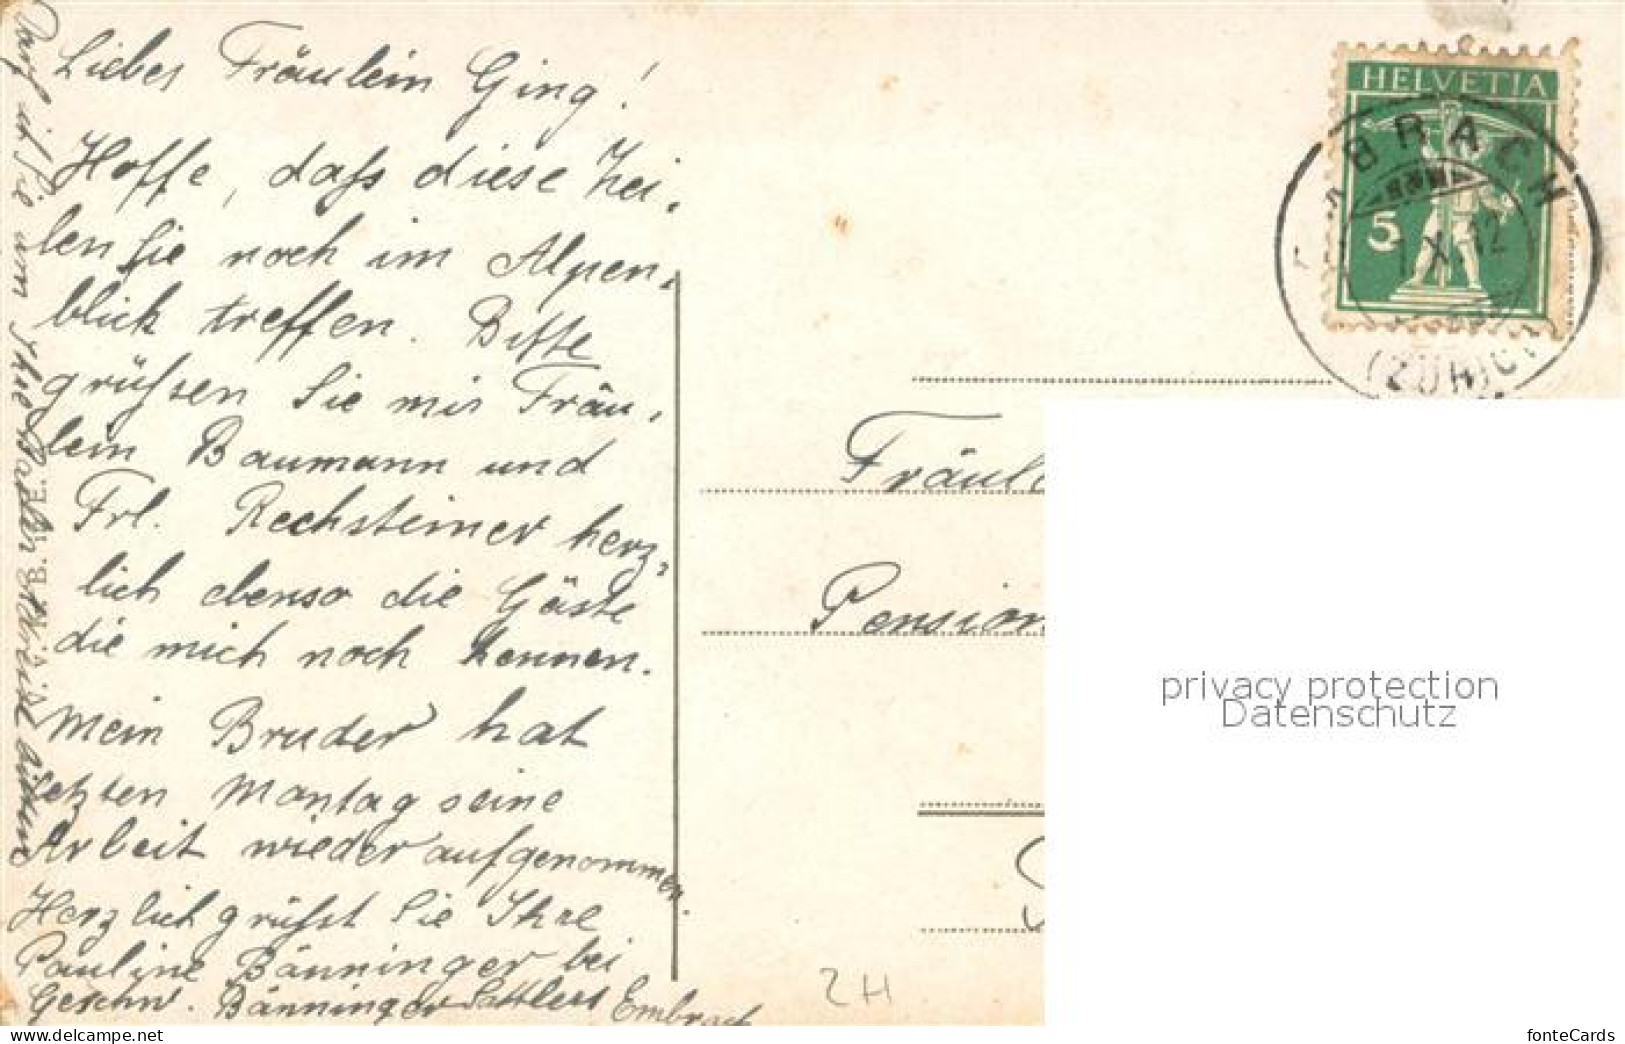 Liebes Fräulein Ging!
Hoffe, dass diese Zei-
len Sie noch im Alpen-
blick treffen. Bitte
grüssen Sie mir Fräu-
lein Baumann und
Frl. Rechsteiner herz-
lich ebenso die Gäste
die mich noch kennen.
Mein Bruder hat
letzten Montag seine
Arbeit wieder aufgenommen.
Herzlich grüsst Sie Ihre
Pauline Bänninger bei
Geschw. Bänninger Sattlers Embrach
Darf ich Sie um Ihre
HELVETIA
5
BRACH
1.X.12
(ZÜRICH)
Fräul
Pension
ZH
privacy protection
Datenschutz
fonteCards